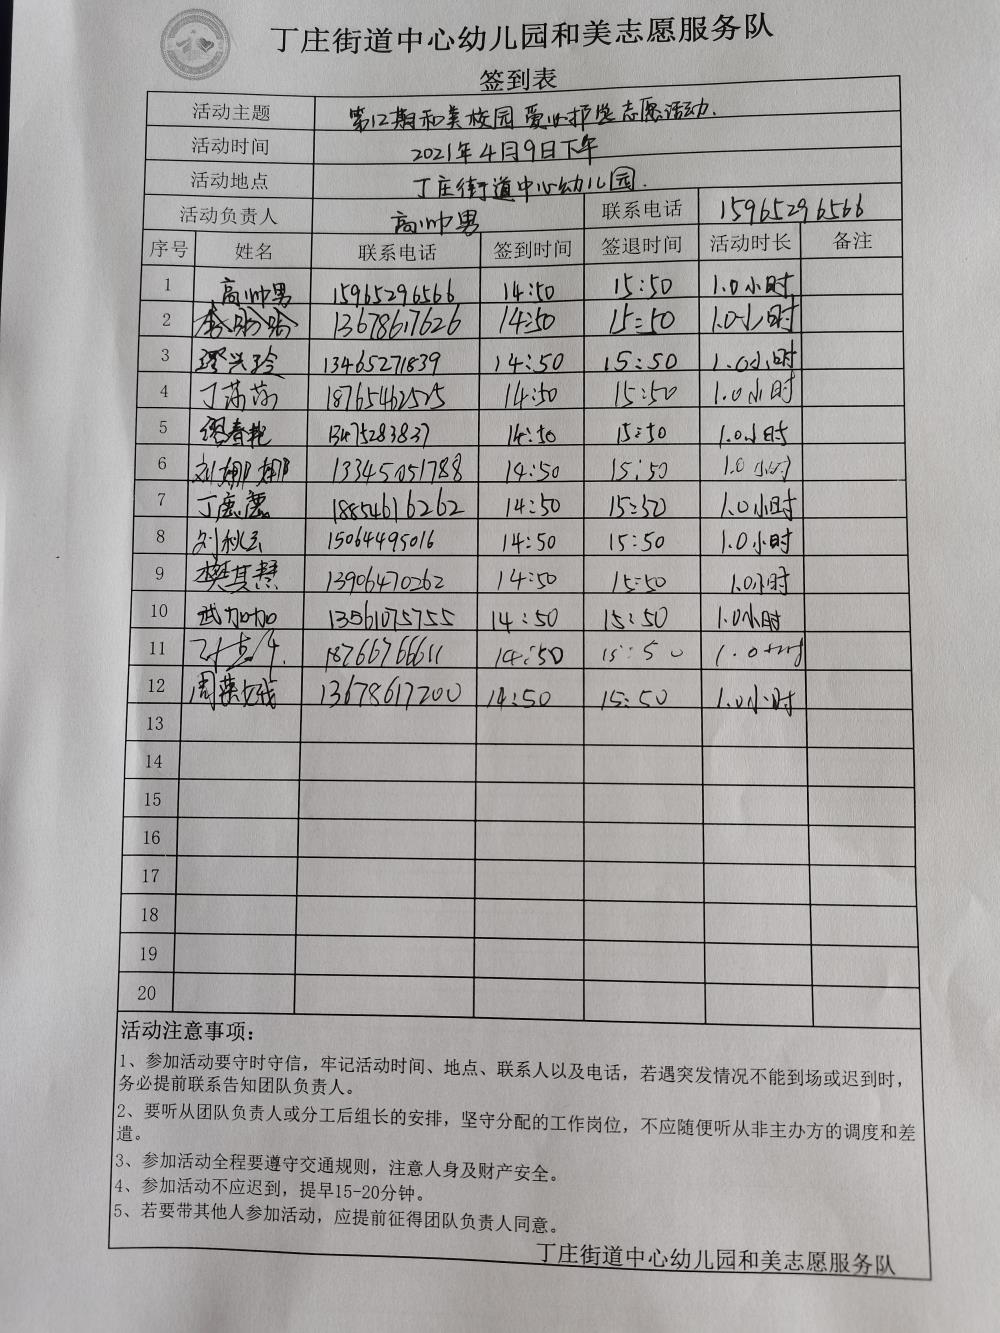 丁庄街道中心幼儿园和美志愿服务队
签到表
活动主题 第12期和美校园 爱心护学志愿活动.
活动时间 2021年4月9日下午
活动地点 丁庄街道中心幼儿园.
活动负责人 高帅男 联系电话 15965296566
序号 姓名 联系电话 签到时间 签退时间 活动时长 备注
1 高帅男 15965296566 14:50 15:50 1.0小时
2 13678617626 14:50 15:50 1.0小时
3 13465271839 14:50 15:50 1.0小时
4 丁荫荫 18765462525 14:50 15:50 1.0小时
5 13475283837 14:50 15:50 1.0小时
6 刘娜娜 13345051788 14:50 15:50 1.0小时
7 丁鹿鹿 18854616262 14:50 15:50 1.0小时
8 15064495016 14:50 15:50 1.0小时
9 樊其慧 13906470262 14:50 15:50 1.0小时
10 武加加 13561075755 14:50 15:50 1.0小时
11 18766766611 14:50 15:50 1.0小时
12 13678617200 14:50 15:50 1.0小时
13
14
15
16
17
18
19
20
活动注意事项：
1、参加活动要守时守信，牢记活动时间、地点、联系人以及电话，若遇突发情况不能到场或迟到时，
务必提前联系告知团队负责人。
2、要听从团队负责人或分工后组长的安排，坚守分配的工作岗位，不应随便听从非主办方的调度和差
遣。
3、参加活动全程要遵守交通规则，注意人身及财产安全。
4、参加活动不应迟到，提早15-20分钟。
5、若要带其他人参加活动，应提前征得团队负责人同意。
丁庄街道中心幼儿园和美志愿服务队